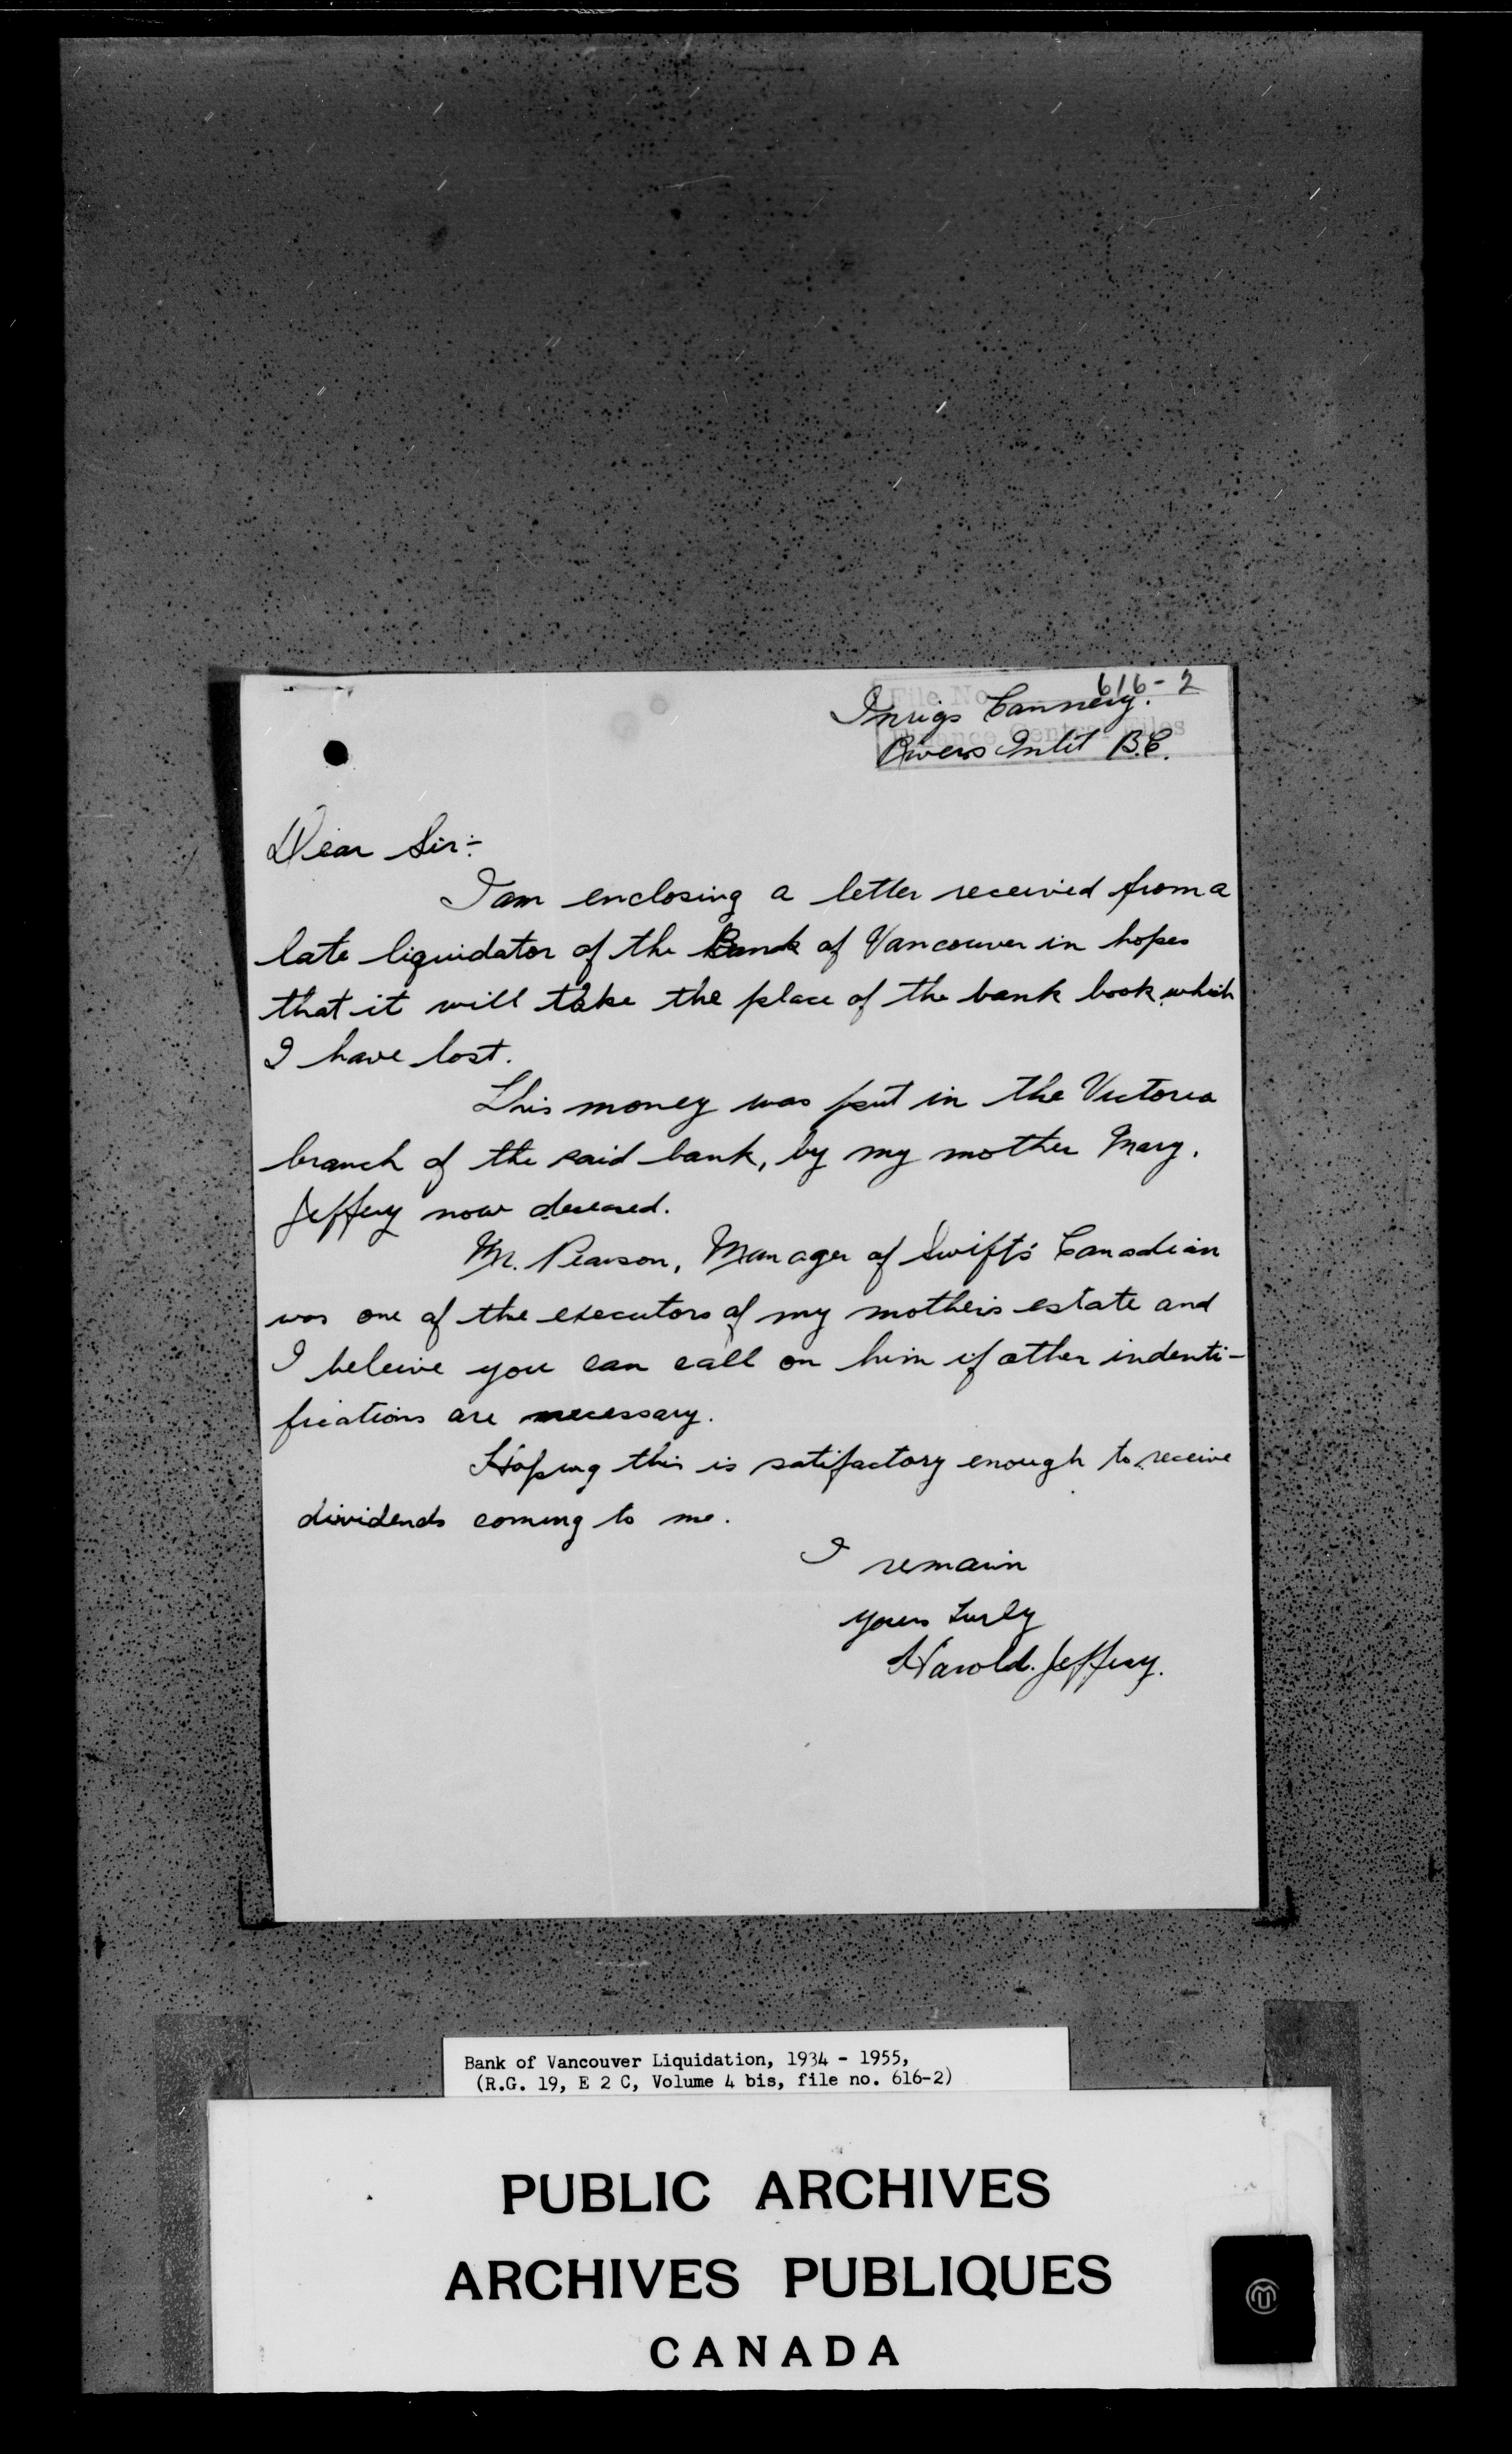 File No. 616-2
Finance Central Files
Inrigs Cannery.
Rivers Inlit B.C.
Dear Sir:-
I am enclosing a letter received from a
late liquidator of the Bank of Vancouver in hopes
that it will take the place of the bank book which
I have lost.
This money was put in the Victoria
branch of the said bank, by my mother Mary.
Jeffery now deceased.
Mr. Pearson, Manager of Swift's Canadian
was one of the executors of my mothers estate and
I beleive you can call on him if other indenti-
fications are necessary.
Hoping this is satifactory enough to receive
dividends coming to me.
I remain
yours turly
Harold. Jeffery.
Bank of Vancouver Liquidation, 1934 - 1955,
(R.G. 19, E 2 C, Volume 4 bis, file no. 616-2)
PUBLIC ARCHIVES
ARCHIVES PUBLIQUES
CANADA